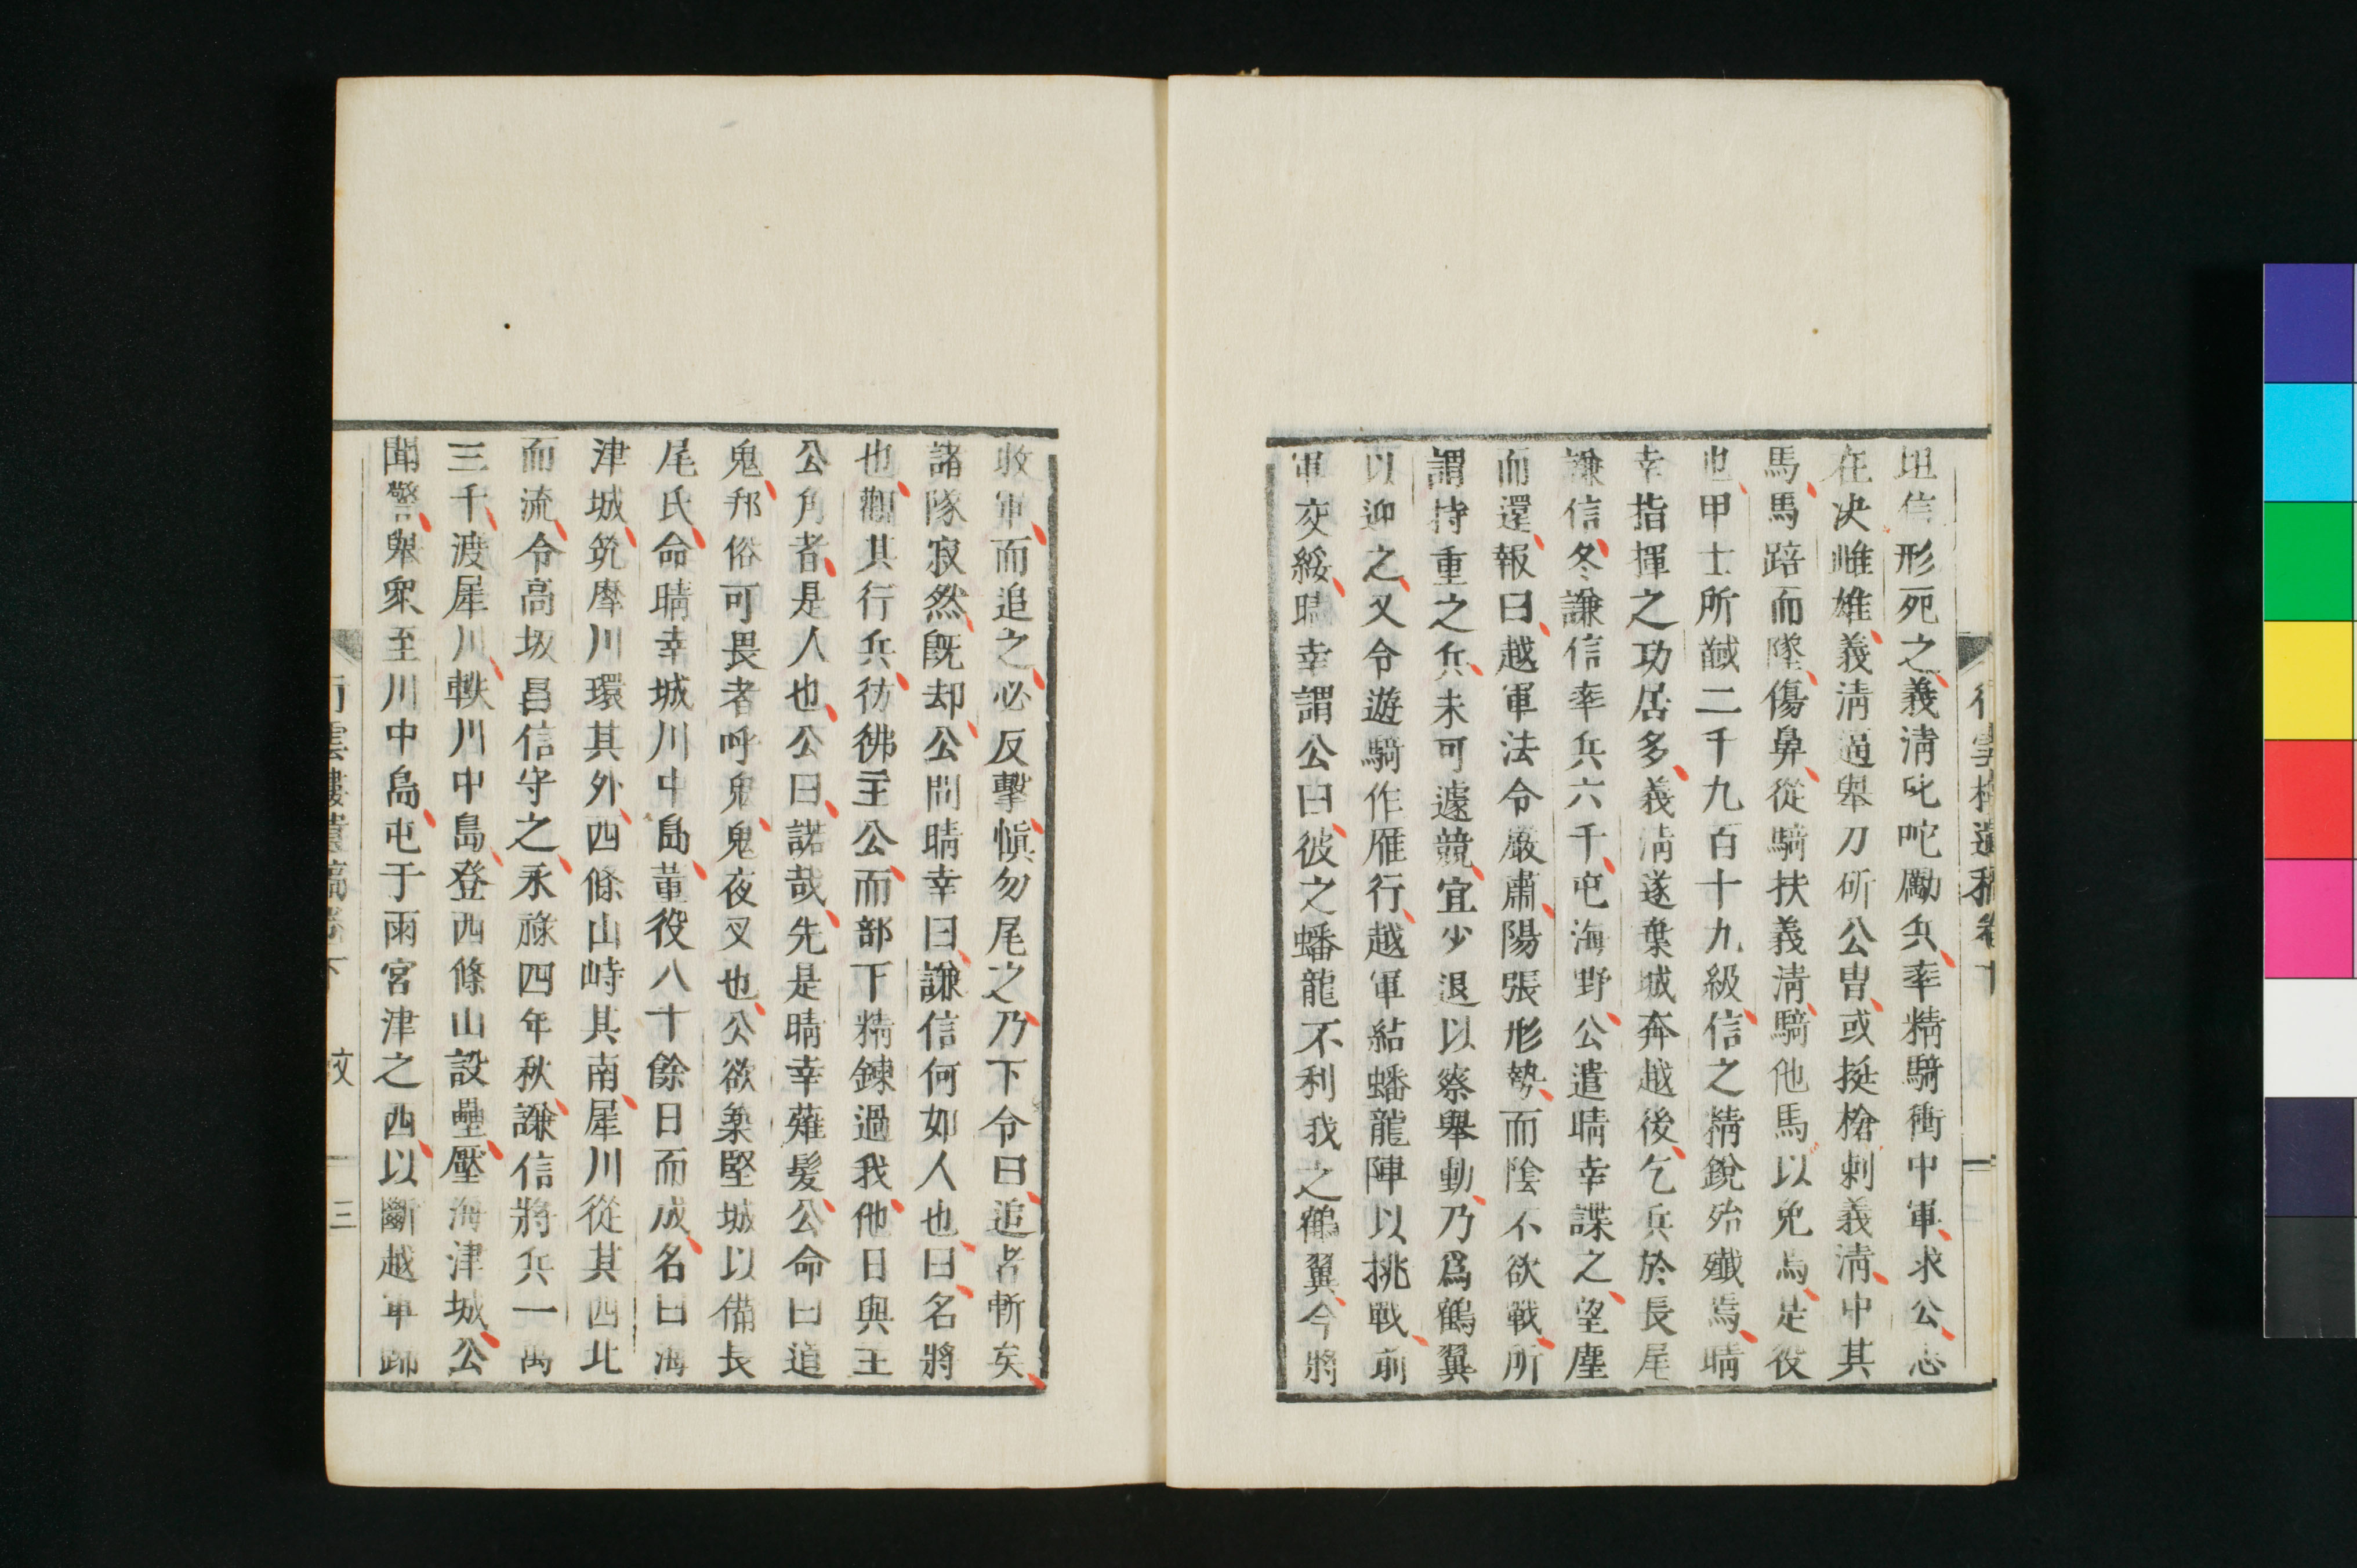 垣信形死之義淸叱咜勵兵率精騎衝中軍求公志
在決雌雄義淸逼舉刀斫公冑或挺槍刺義淸中其
馬馬踣而墜傷鼻從騎扶義淸騎他馬以免焉是役
也甲士所馘二千九百十九級信之精銳殆殲焉晴
幸指揮之功居多義淸遂棄城奔越後乞兵於長尾
謙信冬謙信率兵六千屯海野公遣晴幸諜之望塵
而還報曰越軍法令嚴肅陽張形勢而陰不欲戰所
謂持重之兵未可遽競宜少退以察舉動乃爲鶴翼
以迎之又令遊騎作雁行越軍結蟠龍陣以挑戰前
軍交綏晴幸謂公曰彼之蟠龍不利我之鶴翼今將
收軍而追之必反擊愼勿尾之乃下令曰追者斬矣
諸隊寂然既却公問晴幸曰謙信何如人也曰名將
也觀其行兵彷彿主公而部下精鍊過我他日與主
公角者是人也公曰諾哉先是晴幸薙髮公命曰道
鬼邦俗可畏者呼鬼鬼夜叉也公欲築堅城以備長
尾氏命晴幸城川中島董役八十餘日而成名曰海
津城筑摩川環其外西條山峙其南犀川從其西北
而流令高坂昌信守之永祿四年秋謙信將兵一萬
三千渡犀川軼川中島登西條山設壘壓海津城公
聞警舉衆至川中島屯于雨宮津之西以斷越軍歸
行雲樓遺稿卷下 文 三